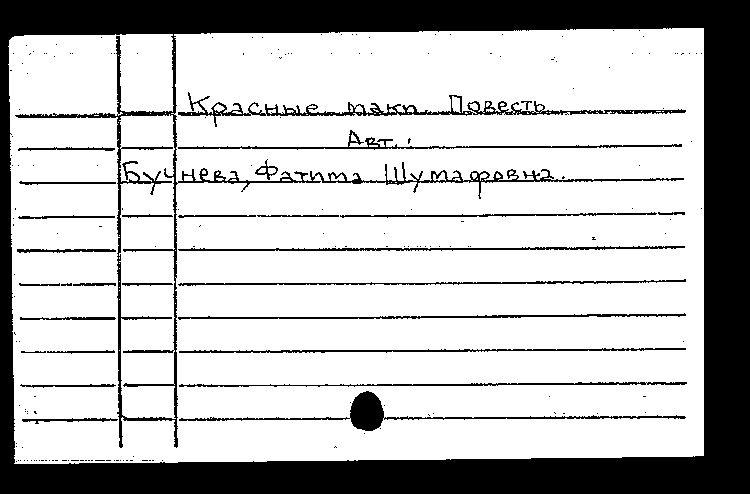 Красные маки. Повесть
Авт.:
Бучнева, Фатима Шумафовна.